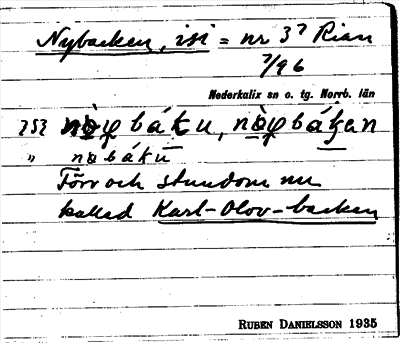 Nybacken, isi = nr 3⁷ Rian
7/96
Nederkalix sn o. tg. Norrb. län
báku,
"
Förr och stundom nu
kallad Karl-Olov-backen
RUBEN DANIELSSON 1935